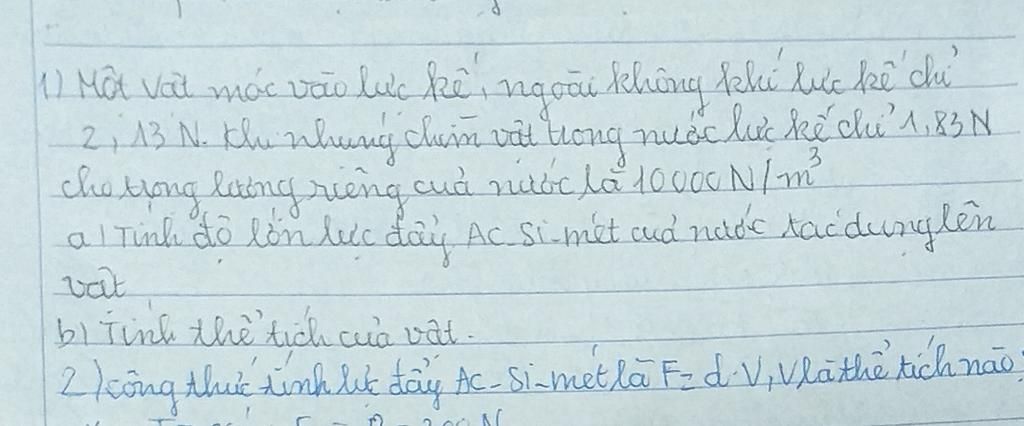 1) Một vật móc vào lực kế, ngoài không khí lực kế chỉ
2,13 N. Khi nhúng chìm vật trong nước lực kế chỉ 1,83 N
cho trọng lượng riêng của nước là 10000 N/m³
a) Tính độ lớn lực đẩy Ac-Si-mét của nước tác dụng lên
vật
b) Tính thể tích của vật.
2) công thức tính lực đẩy Ac-Si-mét là F = d.V, V là thể tích nào?